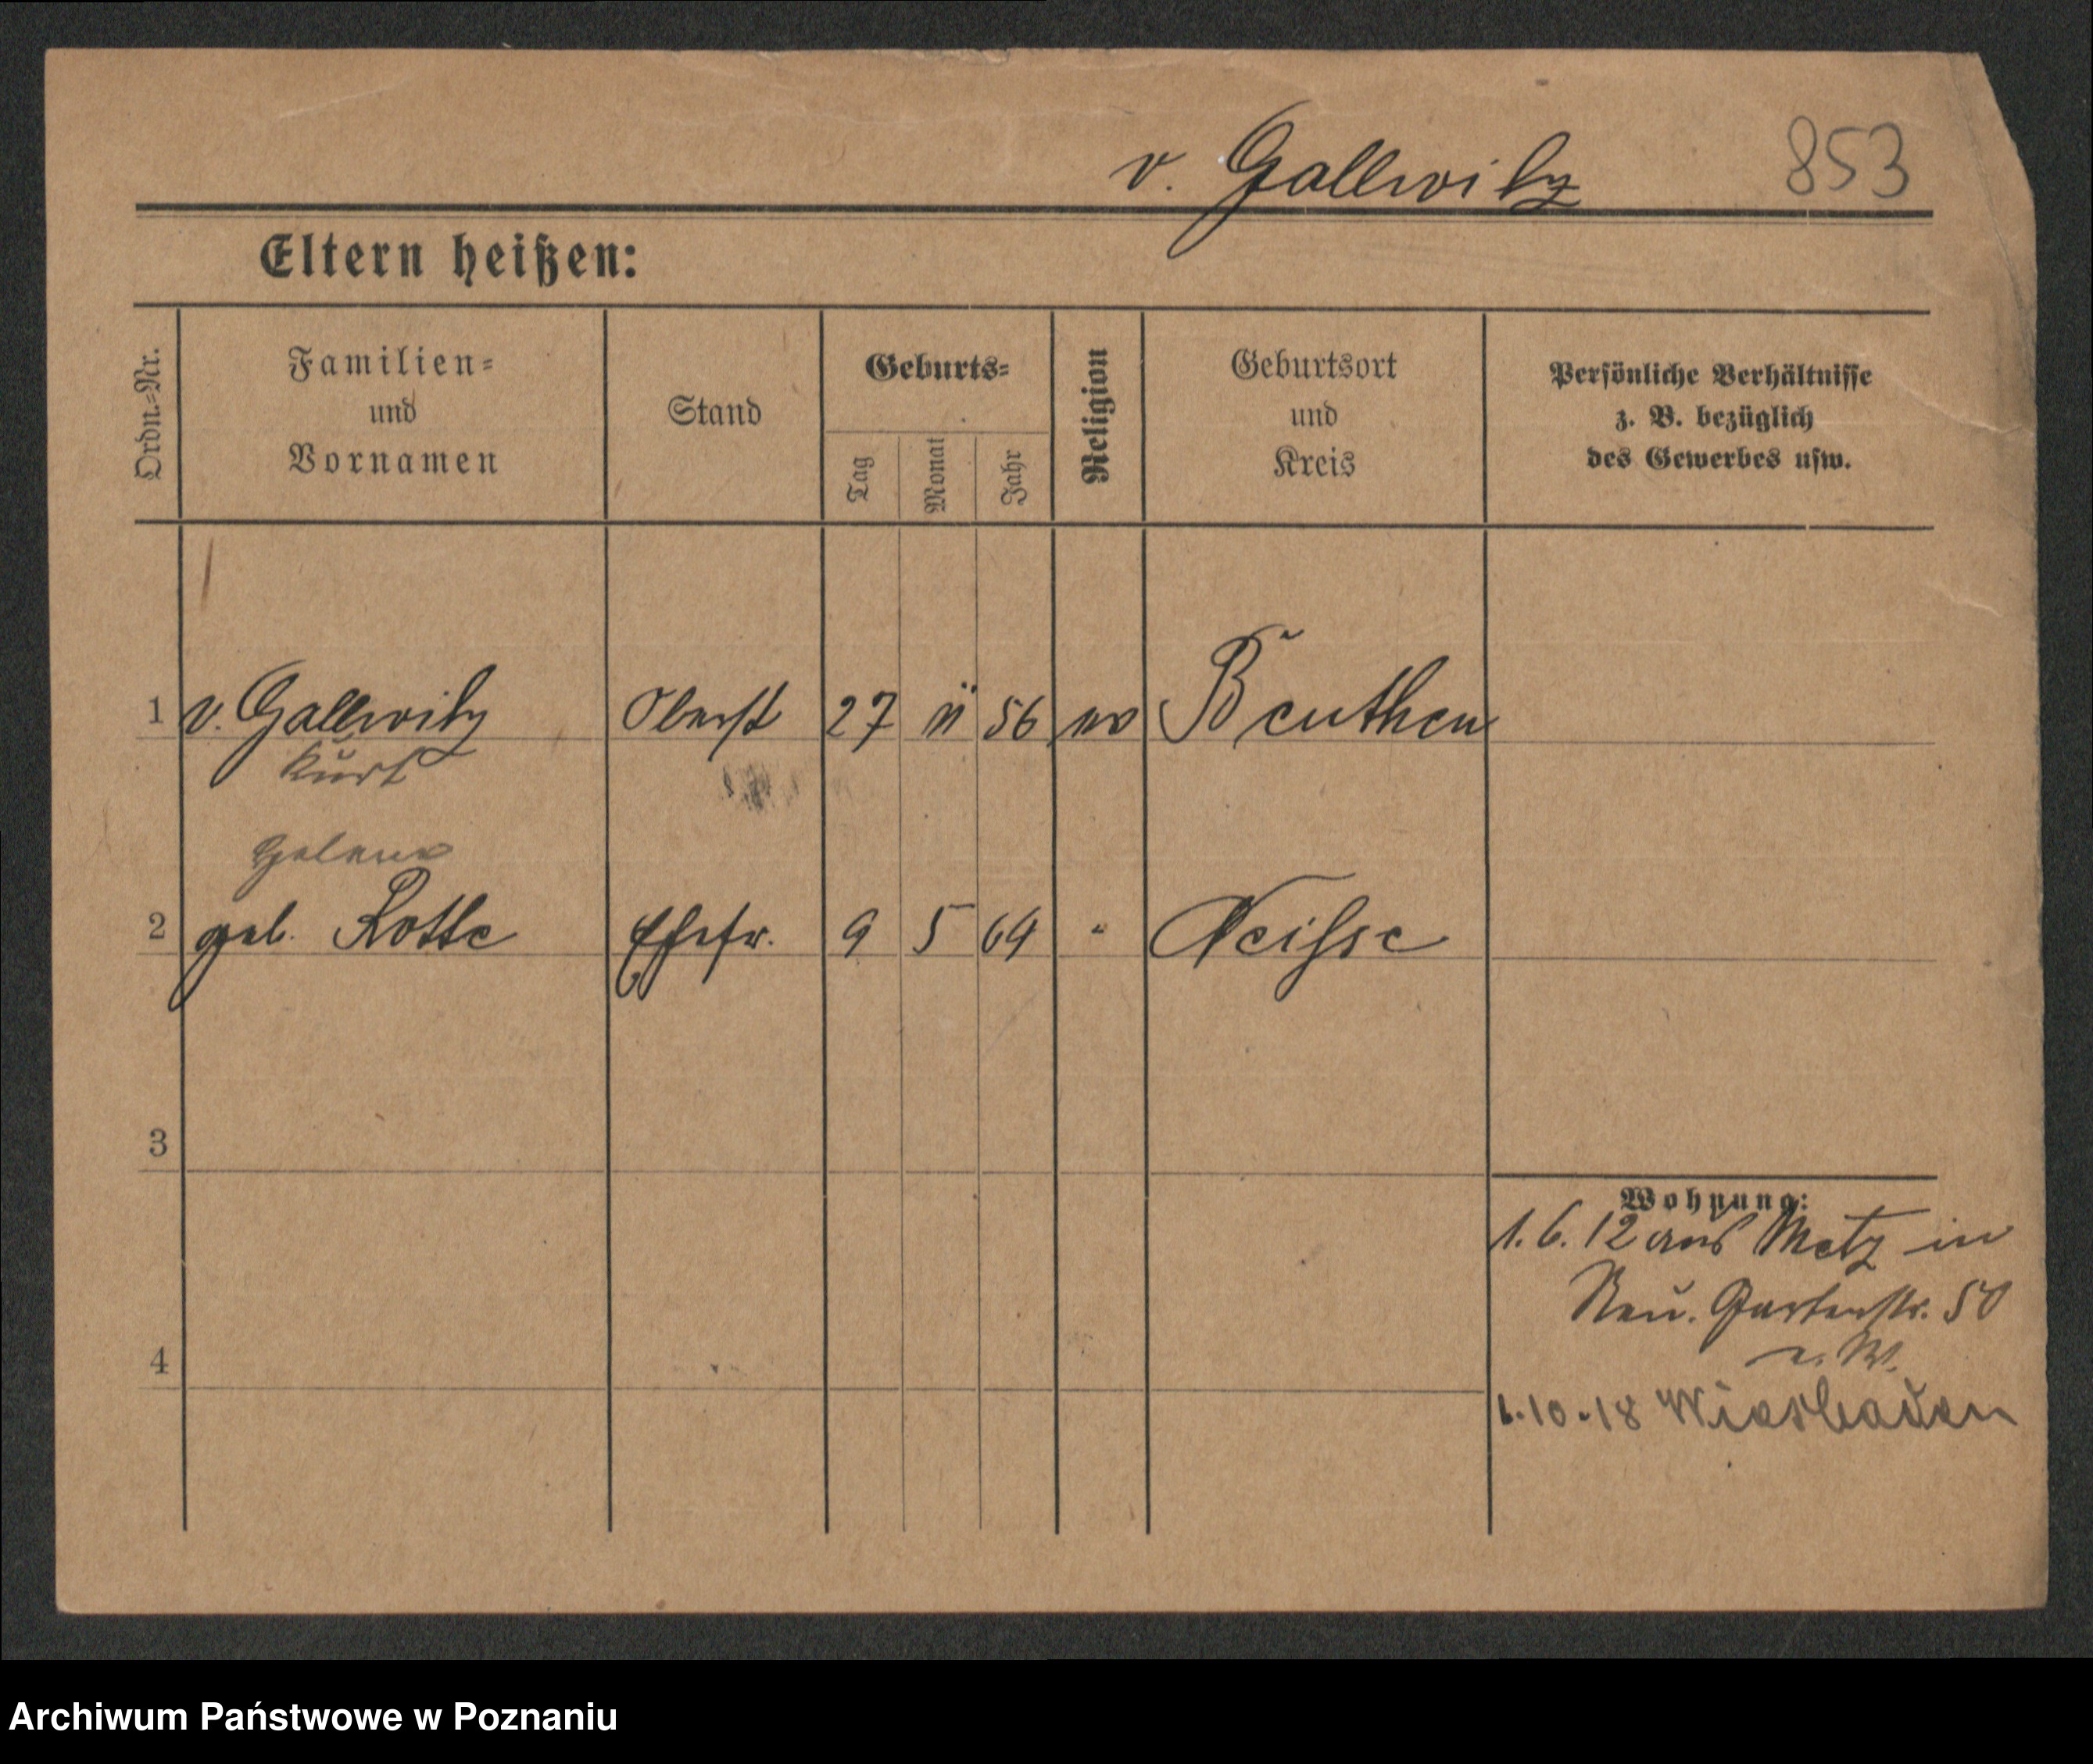 v. Gallwitz 853
Eltern heißen:
Ordn.-Nr.
Familien-
und
Vornamen
Stand
Geburts-
Tag
Monat
Jahr
Religion
Geburtsort
und
Kreis
Persönliche Verhältnisse
z. B. bezüglich
des Gewerbes usw.
1 v. Gallwitz Oberst 27 11 56 ev Beuthen
Kurt
Helene
2 geb. Rotte Ehefr. 9 5 64 " Neisse
3
Wohnung:
1.6.12 aus Metz in
Neu. Gartenstr. 50
4
1.10.18 Wiesbaden
Archiwum Państwowe w Poznaniu